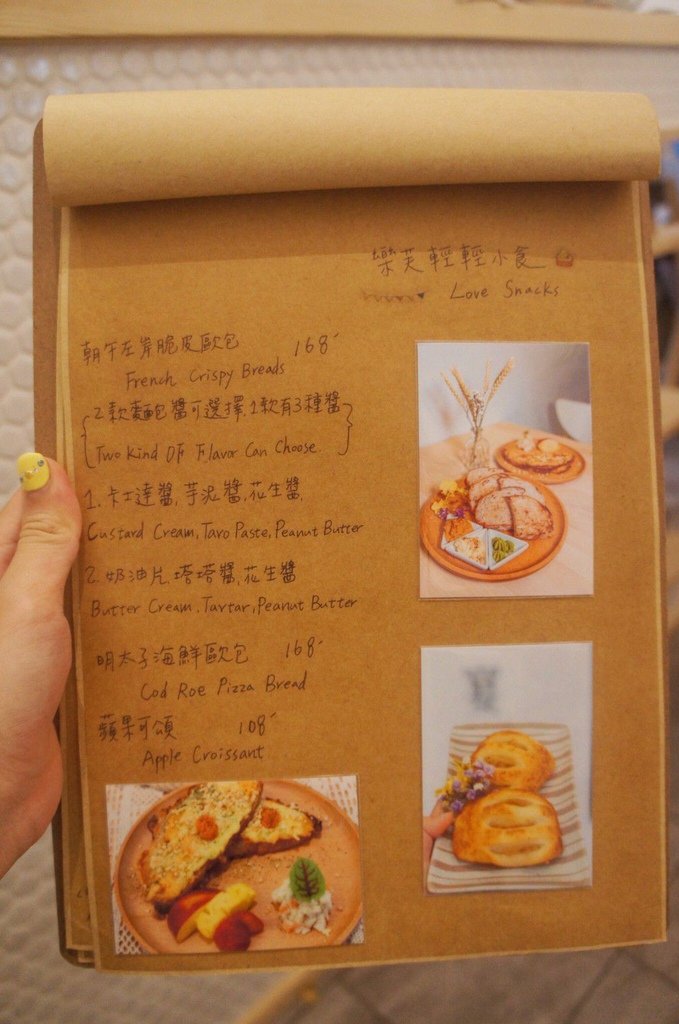 樂芙輕輕小食
Love Snacks
朝午左岸脆皮歐包 168
French Crispy Breads
2款麵包醬可選擇,1款有3種醬
Two Kind Of Flavor Can Choose.
1. 卡士達醬,芋泥醬,花生醬,
Custard Cream, Taro Paste, Peanut Butter
2. 奶油片,塔塔醬,花生醬
Butter Cream, Tartar, Peanut Butter
明太子海鮮歐包 168
Cod Roe Pizza Bread
蘋果可頌 108
Apple Croissant